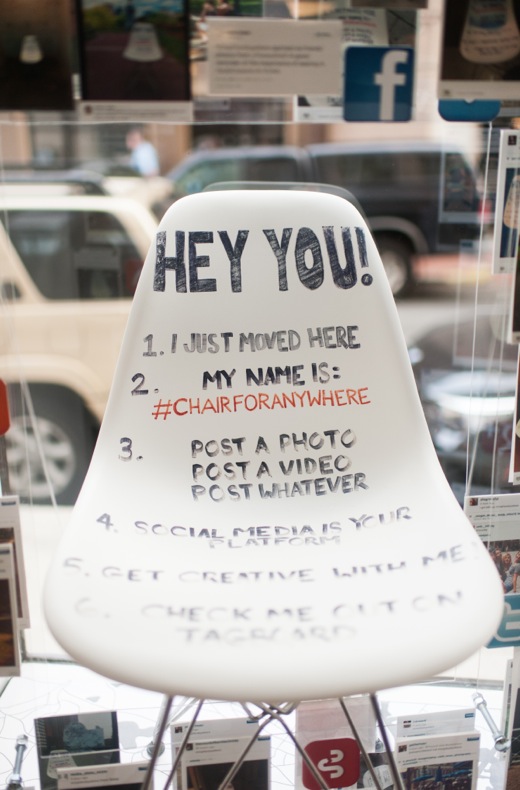 HEY YOU!
1. I JUST MOVED HERE
2. MY NAME IS:
#CHAIRFORANYWHERE
3. POST A PHOTO
POST A VIDEO
POST WHATEVER
4. SOCIAL MEDIA IS YOUR
PLATFORM
5. GET CREATIVE WITH ME
6. CHECK ME OUT ON
TAGBOARD
f